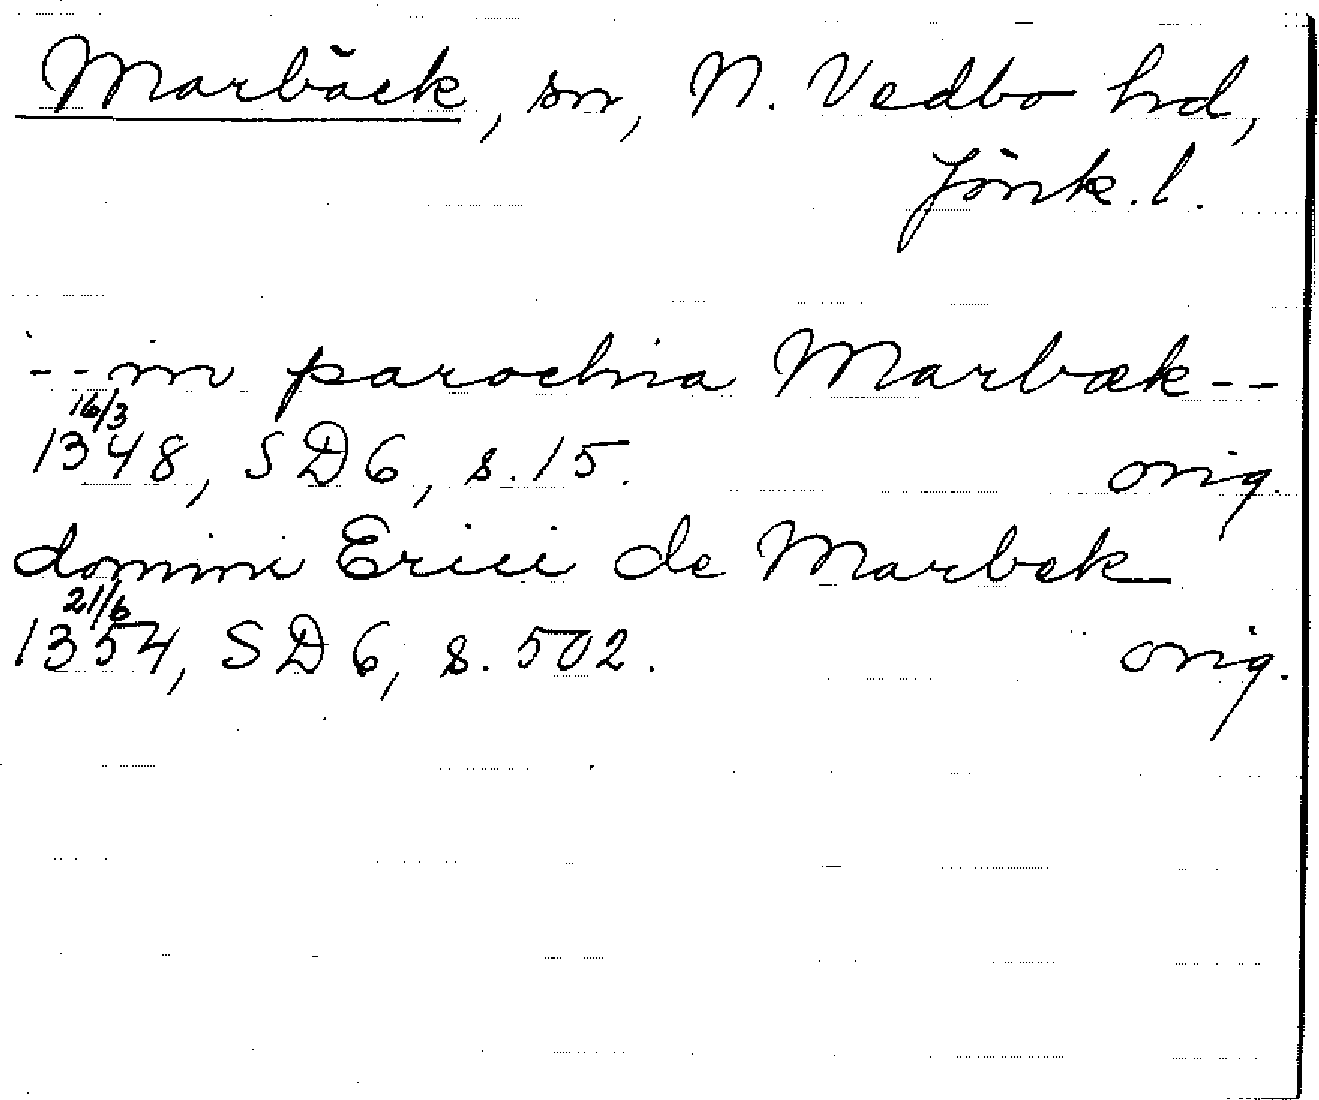 Marbäck, sn, N. Vedbo hd,
Jönk.l.
--in parochia Marbæk--
16/3
1348, SD 6, s. 15. orig.
domini Erici de Marbek
21/6
1354, SD 6, s. 502. orig.